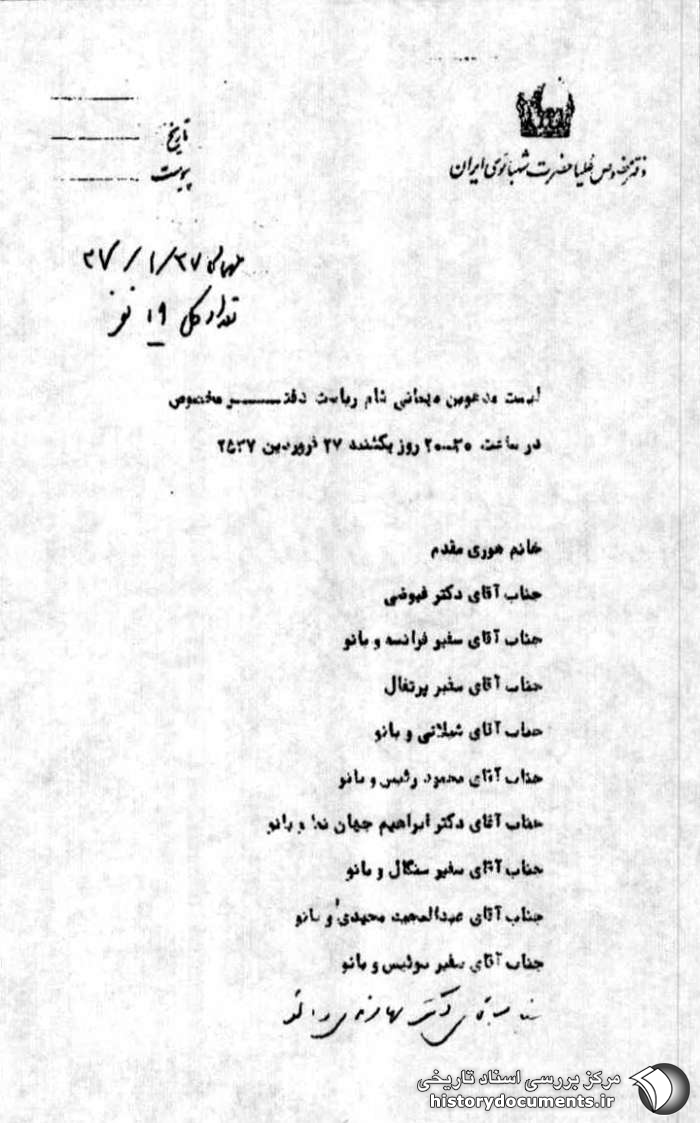 دفتر مخصوص علیاحضرت شهبانوی ایران
تاریخ
پیوست
مهمانی ۳۷/۱/۲۷
تعداد کل ۱۹ نفر
لیست مدعوین مهمانی شام ریاست دفتـــــر مخصوص
در ساعت ۲۰ـ۳۰ روز یکشنبه ۲۷ فروردین ۲۵۳۷
خانم هوری مقدم
جناب آقای دکتر فیوضی
جناب آقای سفیر فرانسه و بانو
جناب آقای سفیر پرتغال
جناب آقای شیلاتی و بانو
جناب آقای محمود رئیس و بانو
جناب آقای دکتر ابراهیم جهان نما و بانو
جناب آقای سفیر سنگال و بانو
جناب آقای عبدالمجید مجیدی و بانو
جناب آقای سفیر سوئیس و بانو
جناب آقای دکتر و بانو
مرکز بررسی اسناد تاریخی
historydocuments.ir